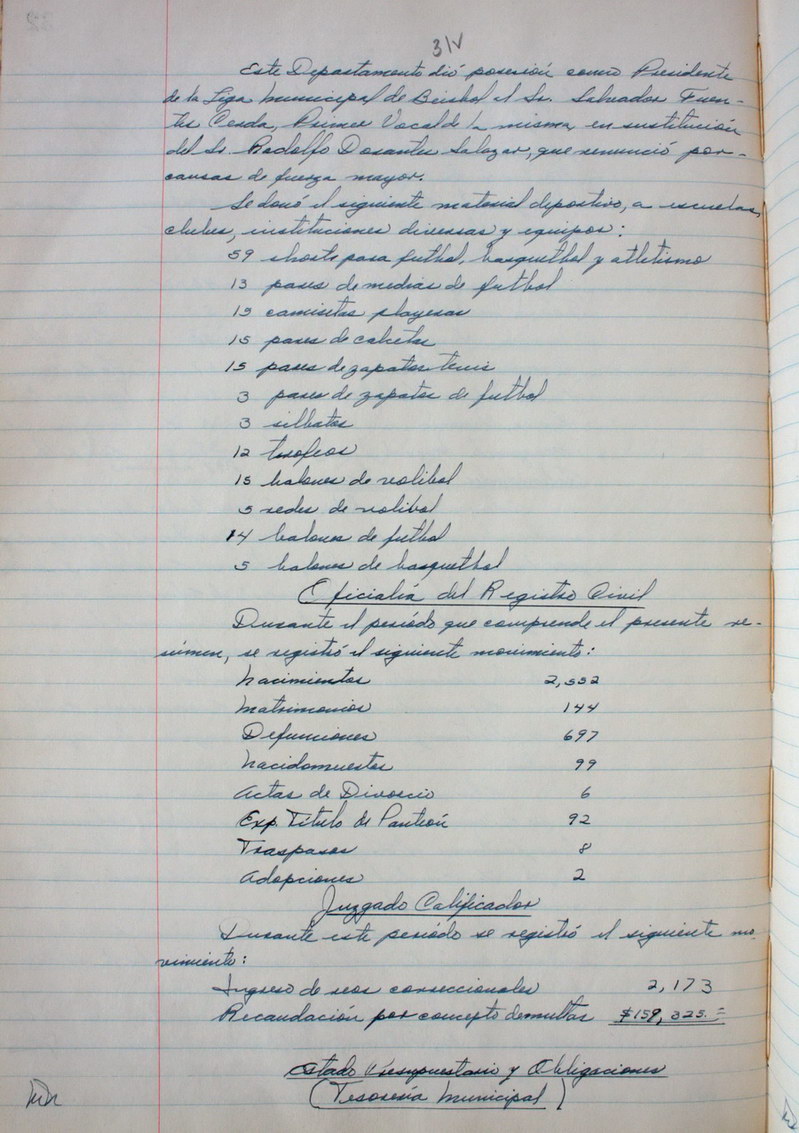 31V
Este Departamento dió posesión como Presidente
de la Liga Municipal de Beisbol el Sr. Salvador Fuen-
tes Cerda, Primer Vocal de la misma, en sustitución
del Sr. Rodolfo Dosantes Salazar, que renunció por
causas de fuerza mayor.
Se donó el siguiente material deportivo, a escuelas,
clubes, instituciones diversas y equipos:
59 shorts para futbol, basquetbol y atletismo
13 pares de medias de futbol
15 camisetas playeras
15 pares de calcetas
15 pares de zapatos tenis
3 pares de zapatos de futbol
3 silbatos
12 trofeos
15 balones de volibol
5 redes de volibol
14 balones de futbol
5 balones de basquetbol
Oficialía del Registro Civil
Durante el período que comprende el presente re-
súmen, se registró el siguiente movimiento:
Nacimientos 2,552
Matrimonios 144
Defunciones 697
Nacidomuertos 99
Actas de Divorcio 6
Exp. Título de Panteón 92
Traspasos 8
Adopciones 2
Juzgado Calificador
Durante este período se registró el siguiente mo-
vimiento:
Ingreso de reos correccionales 2,173
Recaudación por concepto de multas $159,325.=
Estado Presupuestario y Obligaciones
(Tesorería Municipal)